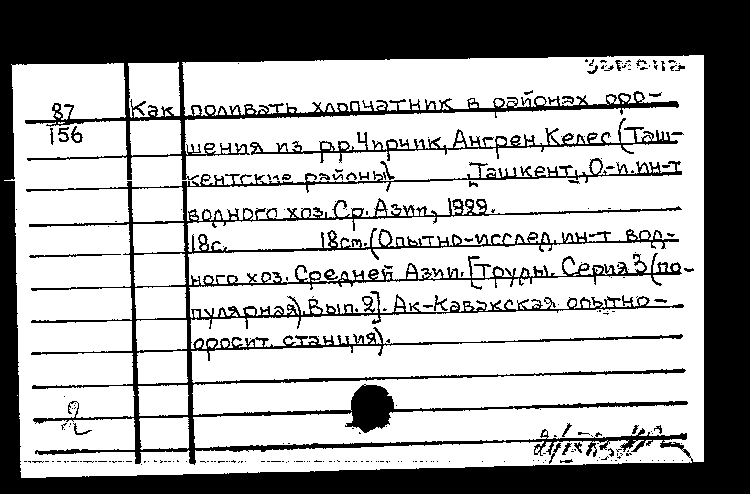 87 Как поливать хлопчатник в районах оро-
156 шения из р.р. Чирчик, Ангрен, Келес (Таш-
кентские районы) [Ташкент], О.-и. ин-т
водного хоз. Ср. Азии, 1929.
18с. 18cm. (Опытно-исслед. ин-т вод-
ного хоз. Средней Азии. [Труды. Серия 3 (по-
пулярная). Вып. 2]. Ак-Кавакская опытно-
оросит. станция).
2